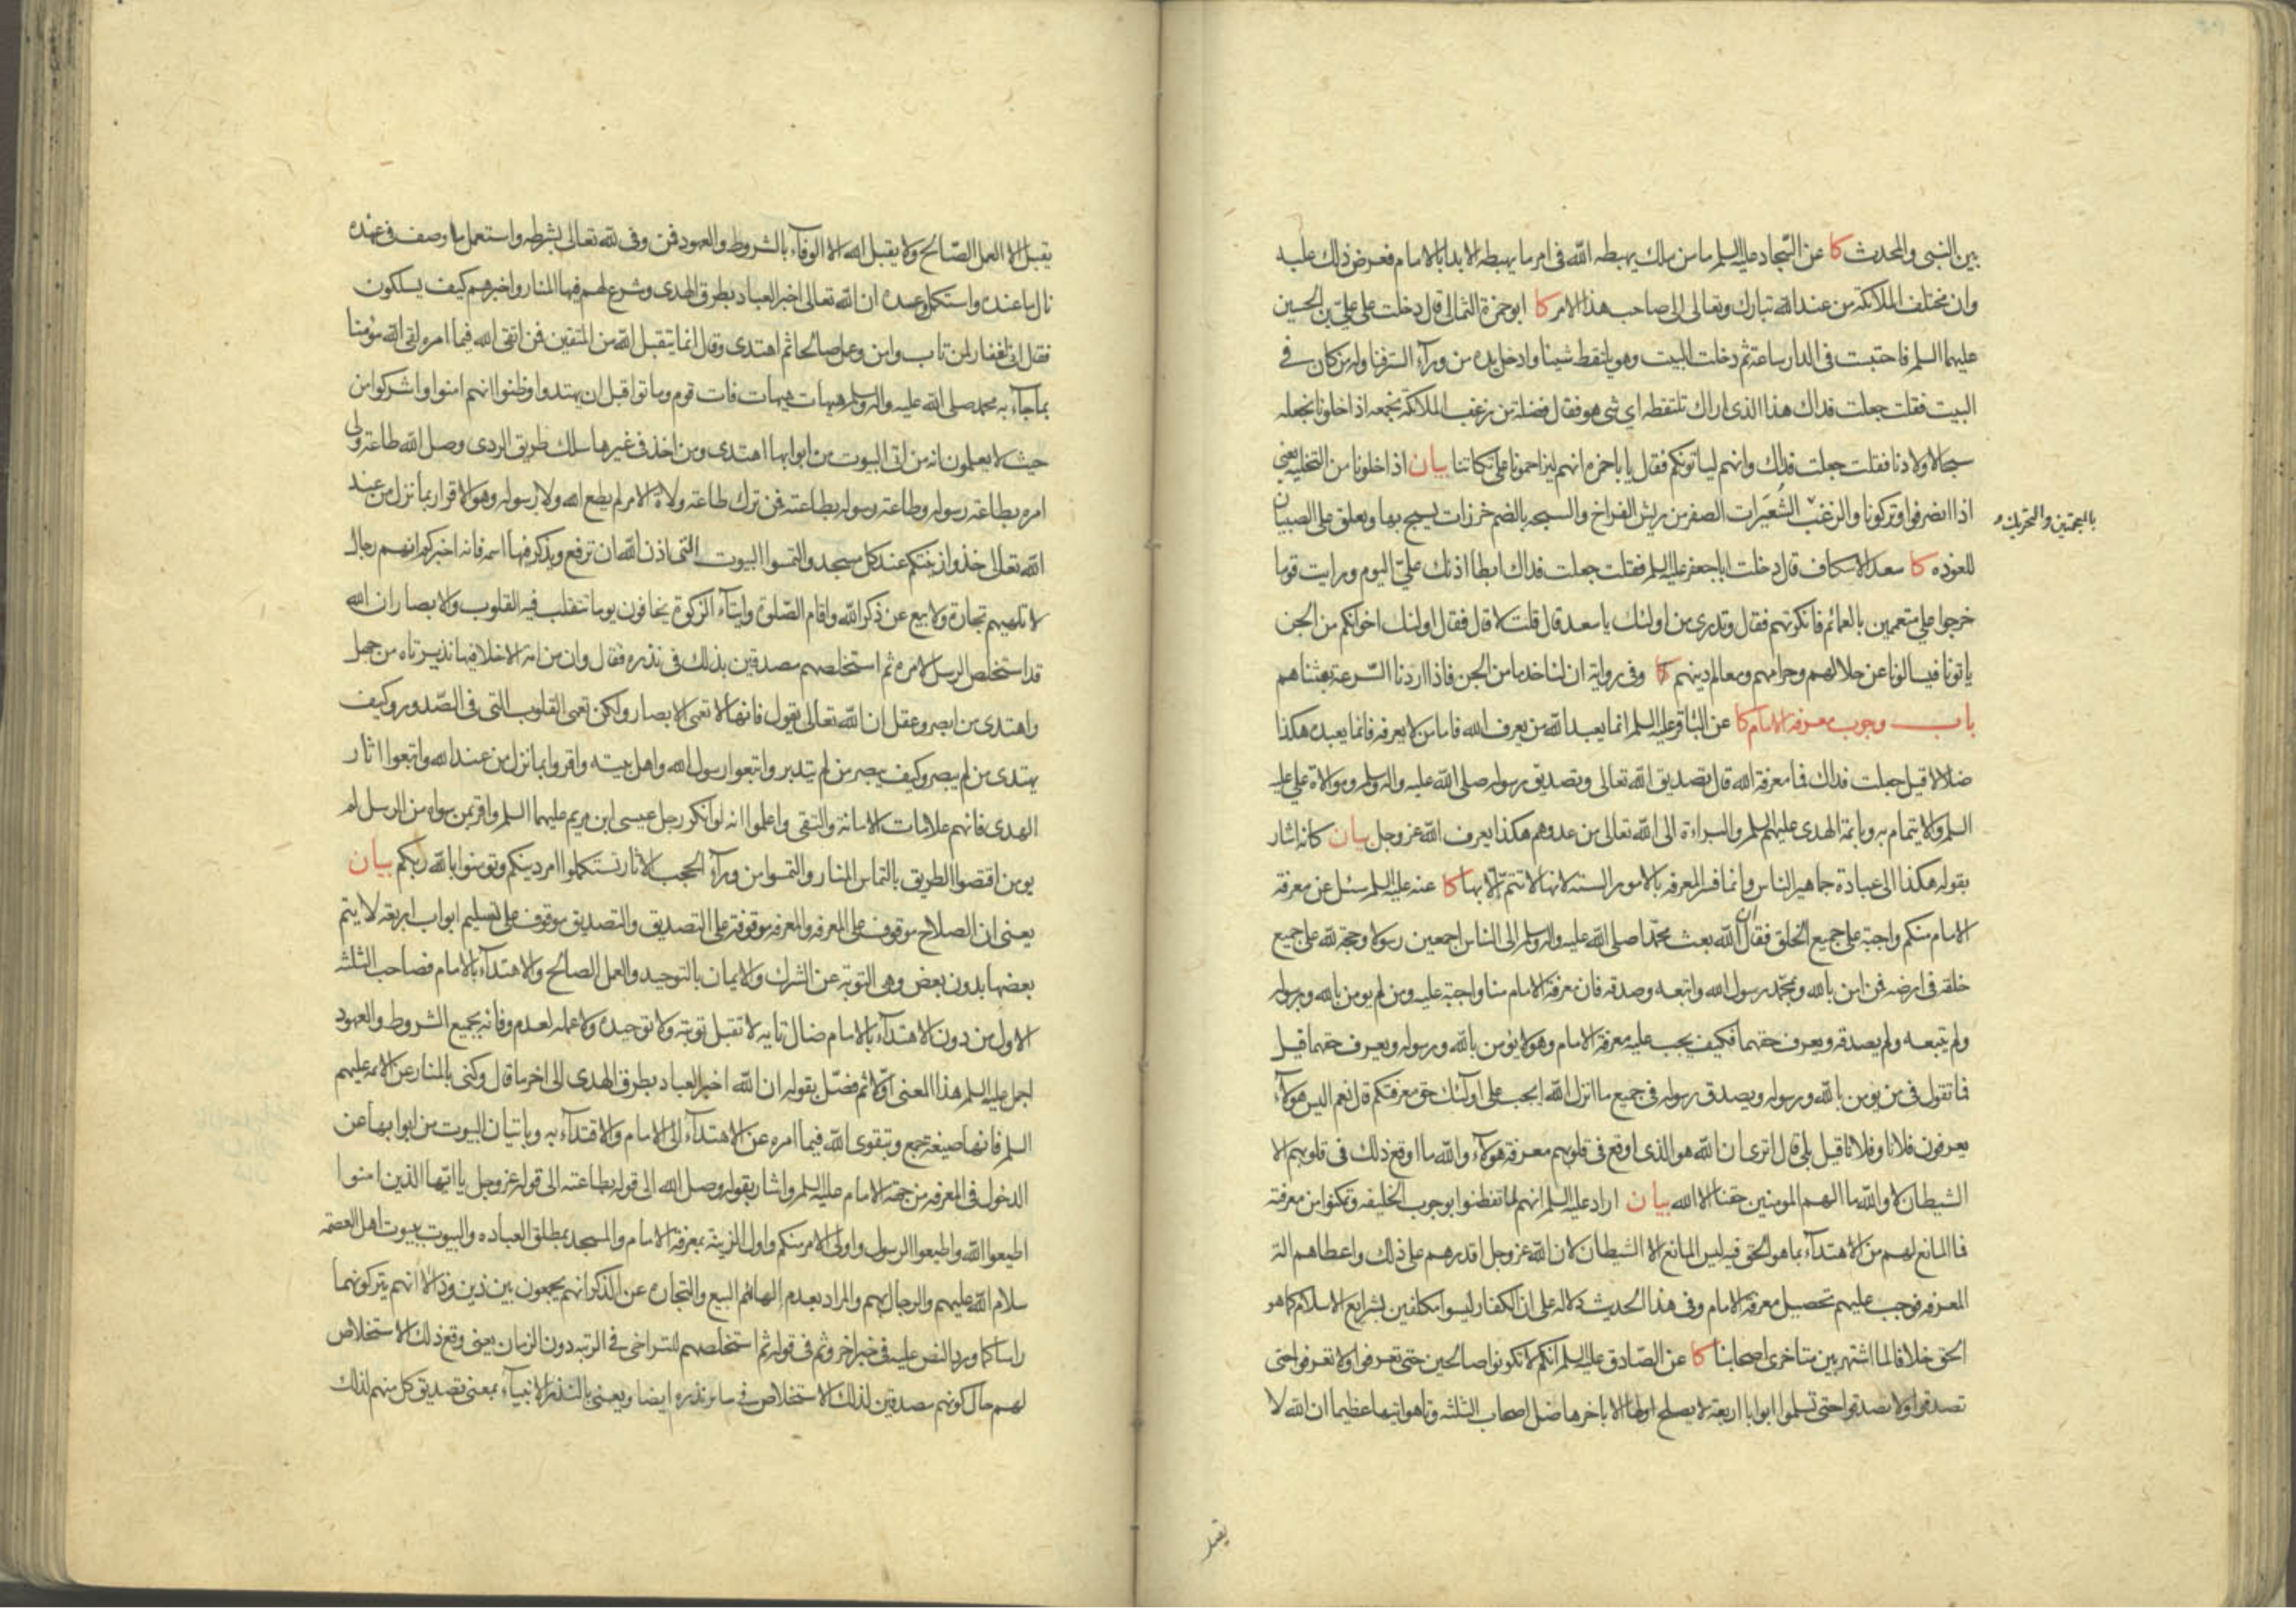 بين النبى والمحدث كا عن السجاد عليه السلم ما من ملك يهبطه الله فى امر ما يهبطه الا بدا بالامام فعرض ذلك عليه
وان مختلف الملائكة من عند الله تبارك وتعالى الى صاحب هذا الامر كا ابو حمزة الثمالى قال دخلت على على بن الحسين
عليهما السلم فاحتبست فى الدار ساعة ثم دخلت البيت وهو يلتقط شيئا وادخل يده من ورآء الستر فناوله من كان فى
البيت فقلت جعلت فداك هذا الذى اراك تلتقطه اى شى هو فقال فضلة من زغب الملائكة نجمعه اذا خلونا نجعله
سبحا لاولادنا فقلت جعلت فداك وانهم لياتونكم فقال يا باحمزه انهم ليزاحمونا على تكاتنا بيان اذا خلونا من التخليه يعنى
اذا انصرفوا وتركونا والزغب الشعيرات الصفر من ريش الفراخ والسبحه بالضم خرزات يسبح بها ويعلق على الصبيان
بالمعجمتين والتحريك
للعوذه كا سعد الاسكاف قال دخلت ابا جعفر عليه السلم فقلت جعلت فداك ابطا اذنك على اليوم ورايت قوما
خرجوا على متعممين بالعمائم فانكرتهم فقال وتدرى من اولئك يا سعد قال قلت لا قال فقال اولئك اخوانكم من الجن
ياتونا فيسالونا عن حلالهم وحرامهم ومعالم دينهم كا وفى رواية ان لنا خدما من الجن فاذا اردنا السرعة بعثناهم
باب وجوب معرفة الامام كا عن الباقر عليه السلم انما يعبد الله من يعرف الله فاما من لا يعرفه فانما يعبده هكذا
ضلالا قيل جعلت فداك فما معرفة الله قال تصديق الله تعالى وتصديق رسوله صلى الله عليه واله وسلم وموالاة على عليه
السلم والايتمام به وبايمة الهدى عليهم السلم والبراءة الى الله تعالى من عدوهم هكذا يعرف الله عز وجل بيان كانه اشار
بقوله هكذا الى عبادة جماهير الناس وانما فسر المعرفه بالامور السته لانها لا تتم الا بها كا عنه عليه السلم سئل عن معرفة
الامام منكم واجبة على جميع الخلق فقال ان الله بعث محمدا صلى الله عليه واله وسلم الى الناس اجمعين رسولا وحجة لله على جميع
خلقه فى ارضه فمن امن بالله وبمحمد رسول الله واتبعه وصدقه فان معرفة الامام منا واجبة عليه ومن لم يومن بالله وبرسوله
ولم يتبعه ولم يصدقه ويعرف حقهما فكيف يجب عليه معرفة الامام وهو لا يؤمن بالله ورسوله ويعرف حقهما قيل
فما تقول فى من يومن بالله ورسوله ويصدق رسوله فى جميع ما انزل الله ايجب على اولئك حق معرفتكم قال نعم اليس هولآء
يعرفون فلانا وفلانا قيل بلى قال اترى ان الله هو الذى اوقع فى قلوبهم معرفة هولآء والله ما اوقع ذلك فى قلوبهم الا
الشيطان لا والله ما الهم المومنين حقنا الا الله بيان اراد عليه السلم انهم لما تفطنوا بوجوب الخليفه وتمكنوا من معرفة
فما المانع لهم من الاهتدآء بما هو الحق فيه ليس المانع الا الشيطان لان الله عز وجل اقدرهم على ذلك واعطاهم الة
المعرفه فوجب عليهم تحصيل معرفة الامام وفى هذا الحديث دلاله على ان الكفار ليسوا مكلفين بشرايع الاسلام كما هو
الحق خلافا لما اشتهر بين متاخرى اصحابنا كا عن الصادق عليه السلم انكم لا تكونوا صالحين حتى تعرفوا ولا تعرفوا حتى
تصدقوا ولا تصدقوا حتى تسلموا ابوابا اربعة لا يصلح اولها الا باخرها ضل اصحاب الثلثه وتاهوا تيها عظيما ان الله لا
يقبل
يقبل الا العمل الصالح ولا يقبل الله الا الوفآء بالشروط والعهود فمن وفى لله تعالى بشرطه واستعمل ما وصف فى عهده
نال ما عنده واستكمل وعده ان الله تعالى اخبر العباد بطرق الهدى وشرع لهم فيها المنار واخبرهم كيف يسلكون
فقال انى لغفار لمن تاب وامن وعمل صالحا ثم اهتدى وقال انما يتقبل الله من المتقين فمن اتقى الله فيما امره لقى الله مؤمنا
بما جآء به محمد صلى الله عليه واله وسلم هيهات هيهات فات قوم وماتوا قبل ان يهتدوا وظنوا انهم امنوا واشركوا من
حيث لا يعلمون انه من اتى البيوت من ابوابها اهتدى ومن اخذ فى غيرها سلك طريق الردى وصل الله طاعة ولى
امره بطاعة رسوله وطاعة رسوله بطاعته فمن ترك طاعة ولاة الامر لم يطع الله ولا رسوله وهو الاقرار بما نزل من عند
الله تعالى خذوا زينتكم عند كل مسجد والتمسوا البيوت التى اذن الله ان ترفع ويذكر فيها اسمه فانه اخبركم انهم رجال
لا تلهيهم تجارة ولا بيع عن ذكر الله واقام الصلوة وايتآء الزكوة يخافون يوما تتقلب فيه القلوب والابصار ان الله
قد استخلص الرسل لامره ثم استخلصهم مصدقين بذلك فى نذره فقال وان من امة الا خلا فيها نذير تاه من جهل
واهتدى من ابصر وعقل ان الله تعالى يقول فانها لا تعمى الابصار ولكن تعمى القلوب التى فى الصدور وكيف
يهتدى من لم يبصر وكيف يبصر من لم يتدبر واتبعوا رسول الله واهل بيته واقروا بما نزل من عند الله واتبعوا اثار
الهدى فانهم علامات الامانة والتقى واعلموا انه لو انكر رجل عيسى ابن مريم عليهما السلم واقر بمن سواه من الرسل لم
يومن اقتصوا الطريق بالتماس المنار والتمسوا من ورآء الحجب الاثار تستكملوا امر دينكم وتومنوا بالله ربكم بيان
يعنى ان الصلاح موقوف على المعرفه والمعرفه موقوفة على التصديق والتصديق موقوف على تسليم ابواب اربعة لا يتم
بعضها بدون بعض وهى التوبة عن الشرك والايمان بالتوحيد والعمل الصالح والاهتدآء بالامام فصاحب الثلثة
الاول من دون الاهتدآء بالامام ضال تايه لا تقبل توبته ولا توحيده ولا عمله لعدم وفائه بجميع الشروط والعهود
اجمل عليه السلم هذا المعنى اولا ثم فصل بقوله ان الله اخبر العباد بطرق الهدى الى اخر ما قال وكنى بالمنار عن الائمه عليهم
السلم فانها صيغة جمع وبتقوى الله فيما امره عن الاهتدآء الى الامام والاقتدآء به وباتيان البيوت من ابوابها عن
الدخول فى المعرفه من جهة الامام عليه السلم واشار بقوله وصل الله الى قوله بطاعته الى قوله عز وجل يا ايها الذين امنوا
اطيعوا الله واطيعوا الرسول واولى الامر منكم واول الزينة بمعرفة الامام والمسجد بمطلق العباده والبيوت بيوت اهل العصمه
سلام الله عليهم والرجال بهم والمراد بعدم الهائهم البيع والتجاره عن الذكر انهم يجمعون بين ذين وذا لا انهم يتركونهما
راسا كما ورد النص عليه فى خبر اخر وثم فى قوله ثم استخلصهم للتراخى فى الرتبه دون الزمان يعنى وقع ذلك الاستخلاص
لهم حال كونهم مصدقين لذلك الاستخلاص فى سائر نذره ايضا ويعنى بالنذر الانبيآء بمعنى تصديق كل منهم لذلك